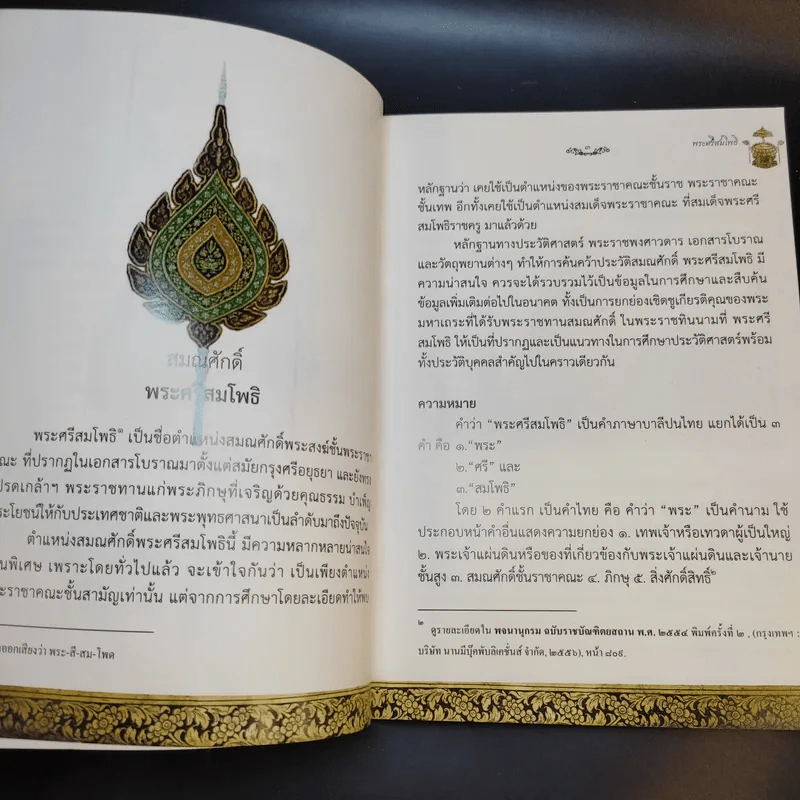 สมณศักดิ์
พระศรีสมโพธิ
พระศรีสมโพธิ๑ เป็นชื่อตำแหน่งสมณศักดิ์พระสงฆ์ชั้นพระราชา
คณะ ที่ปรากฏในเอกสารโบราณมาตั้งแต่สมัยกรุงศรีอยุธยา และยังทรง
โปรดเกล้าฯ พระราชทานแก่พระภิกษุที่เจริญด้วยคุณธรรม บำเพ็ญ
ประโยชน์ให้กับประเทศชาติและพระพุทธศาสนาเป็นลำดับมาถึงปัจจุบัน
ตำแหน่งสมณศักดิ์พระศรีสมโพธินี้ มีความหลากหลายน่าสนใจ
เป็นพิเศษ เพราะโดยทั่วไปแล้ว จะเข้าใจกันว่า เป็นเพียงตำแหน่ง
พระราชาคณะชั้นสามัญเท่านั้น แต่จากการศึกษาโดยละเอียดทำให้พบ
ออกเสียงว่า พระ-สี-สม-โพด
๓
พระศรีสมโพธิ
หลักฐานว่า เคยใช้เป็นตำแหน่งของพระราชาคณะชั้นราช พระราชาคณะ
ชั้นเทพ อีกทั้งเคยใช้เป็นตำแหน่งสมเด็จพระราชาคณะ ที่สมเด็จพระศรี
สมโพธิราชครู มาแล้วด้วย
หลักฐานทางประวัติศาสตร์ พระราชพงศาวดาร เอกสารโบราณ
และวัตถุพยานต่างๆ ทำให้การค้นคว้าประวัติสมณศักดิ์ พระศรีสมโพธิ มี
ความน่าสนใจ ควรจะได้รวบรวมไว้เป็นข้อมูลในการศึกษาและสืบค้น
ข้อมูลเพิ่มเติมต่อไปในอนาคต ทั้งเป็นการยกย่องเชิดชูเกียรติคุณของพระ
มหาเถระที่ได้รับพระราชทานสมณศักดิ์ ในพระราชทินนามที่ พระศรี
สมโพธิ ให้เป็นที่ปรากฏและเป็นแนวทางในการศึกษาประวัติศาสตร์พร้อม
ทั้งประวัติบุคคลสำคัญไปในคราวเดียวกัน
ความหมาย
คำว่า “พระศรีสมโพธิ” เป็นคำภาษาบาลีปนไทย แยกได้เป็น ๓
คำ คือ ๑.“พระ”
๒.“ศรี” และ
๓.“สมโพธิ”
โดย ๒ คำแรก เป็นคำไทย คือ คำว่า “พระ” เป็นคำนาม ใช้
ประกอบหน้าคำอื่นแสดงความยกย่อง ๑. เทพเจ้าหรือเทวดาผู้เป็นใหญ่
๒. พระเจ้าแผ่นดินหรือของที่เกี่ยวข้องกับพระเจ้าแผ่นดินและเจ้านาย
ชั้นสูง ๓. สมณศักดิ์ชั้นราชาคณะ ๔. ภิกษุ ๕. สิ่งศักดิ์สิทธิ์๒
๒ ดูรายละเอียดใน พจนานุกรม ฉบับราชบัณฑิตยสถาน พ.ศ. ๒๕๕๔ พิมพ์ครั้งที่ ๒ , (กรุงเทพฯ :
บริษัท นานมีบุ๊คพับลิเคชั่นส์ จำกัด, ๒๕๕๖), หน้า ๘๐๙.